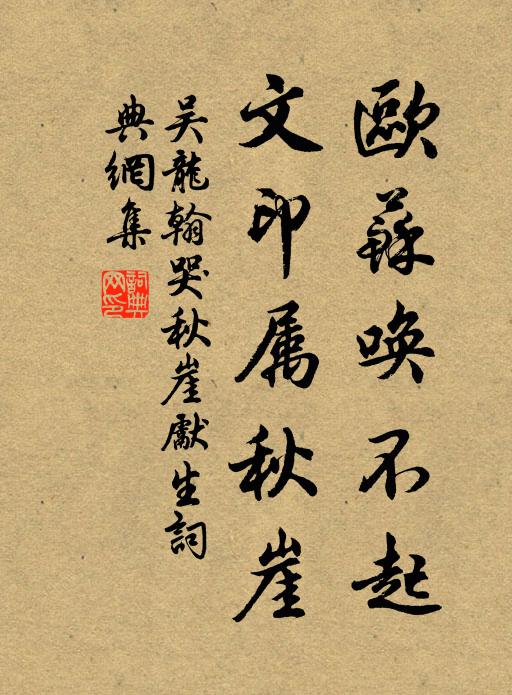 歐蘇唤不起
文印属秋崖
吴龍翰哭秋崖獻生詞
典網集
詞典
网印